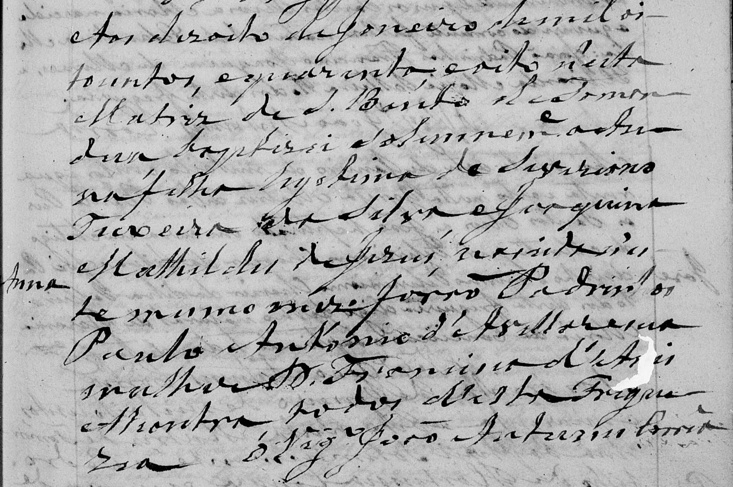 Aos dezoito de Janeiro de mil oi-
tocentos, e quarenta e oito nesta
Matriz de S. Bento de Taman-
duá baptizei solemnem.e a An-
na filha legitima de Severiano
Teixeira da Silva e Joaquina
Mathildes de Jesus, nascida
Anna
te mesmo mez forão Padrinhos
Paulo Antonio d'Avellar e sua
mulher D. Francina d'Assis
todos d'esta Fregue-
zia O Vigr.o João Antunes Corrêa